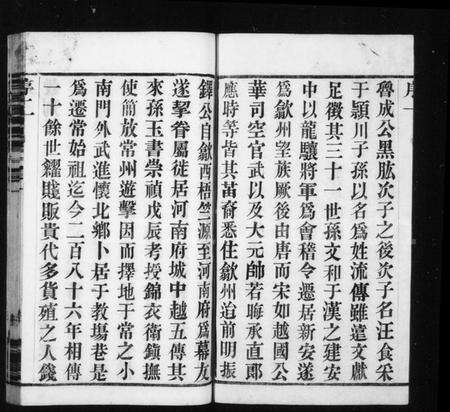 序一
魯成公黑肱次子之後次子名汪食采
于潁川子孫以名為姓流傳雖遠文獻
足徵其三十一世孫文和于漢之建安
中以龍驤將軍為會稽令遷居新安遂
為歙州望族厥後由唐而宋如越國公
華司空官武以及大元帥若晦承直郎
應時等皆其苗裔悉住歙州迨前明振
鐸公自歙西梧竺源至河南府為幕友
遂挈眷屬徙居河南府城中越五傳其
來孫玉書崇禎戊辰考授錦衣衛鎮撫
使簡放常州遊擊因而擇地于常之小
南門外武進懷北鄉卜居于教場巷是
為遷常始祖迄今二百八十六年相傳
一十餘世糶賤販貴代多貨殖之人錢
序二